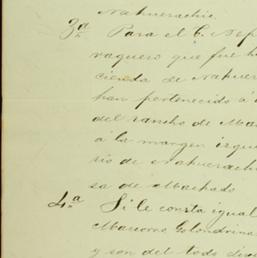 Nahuerachic.
3a. Para el C. Sep
vaquero que fué h
cienda de Nahuer
han pertenecido á
del rancho de Ma
á la margen izqui
rio de Nahuerach
sa de Machado
4a. Si le consta igual
Macario Golondrina
y son del todo